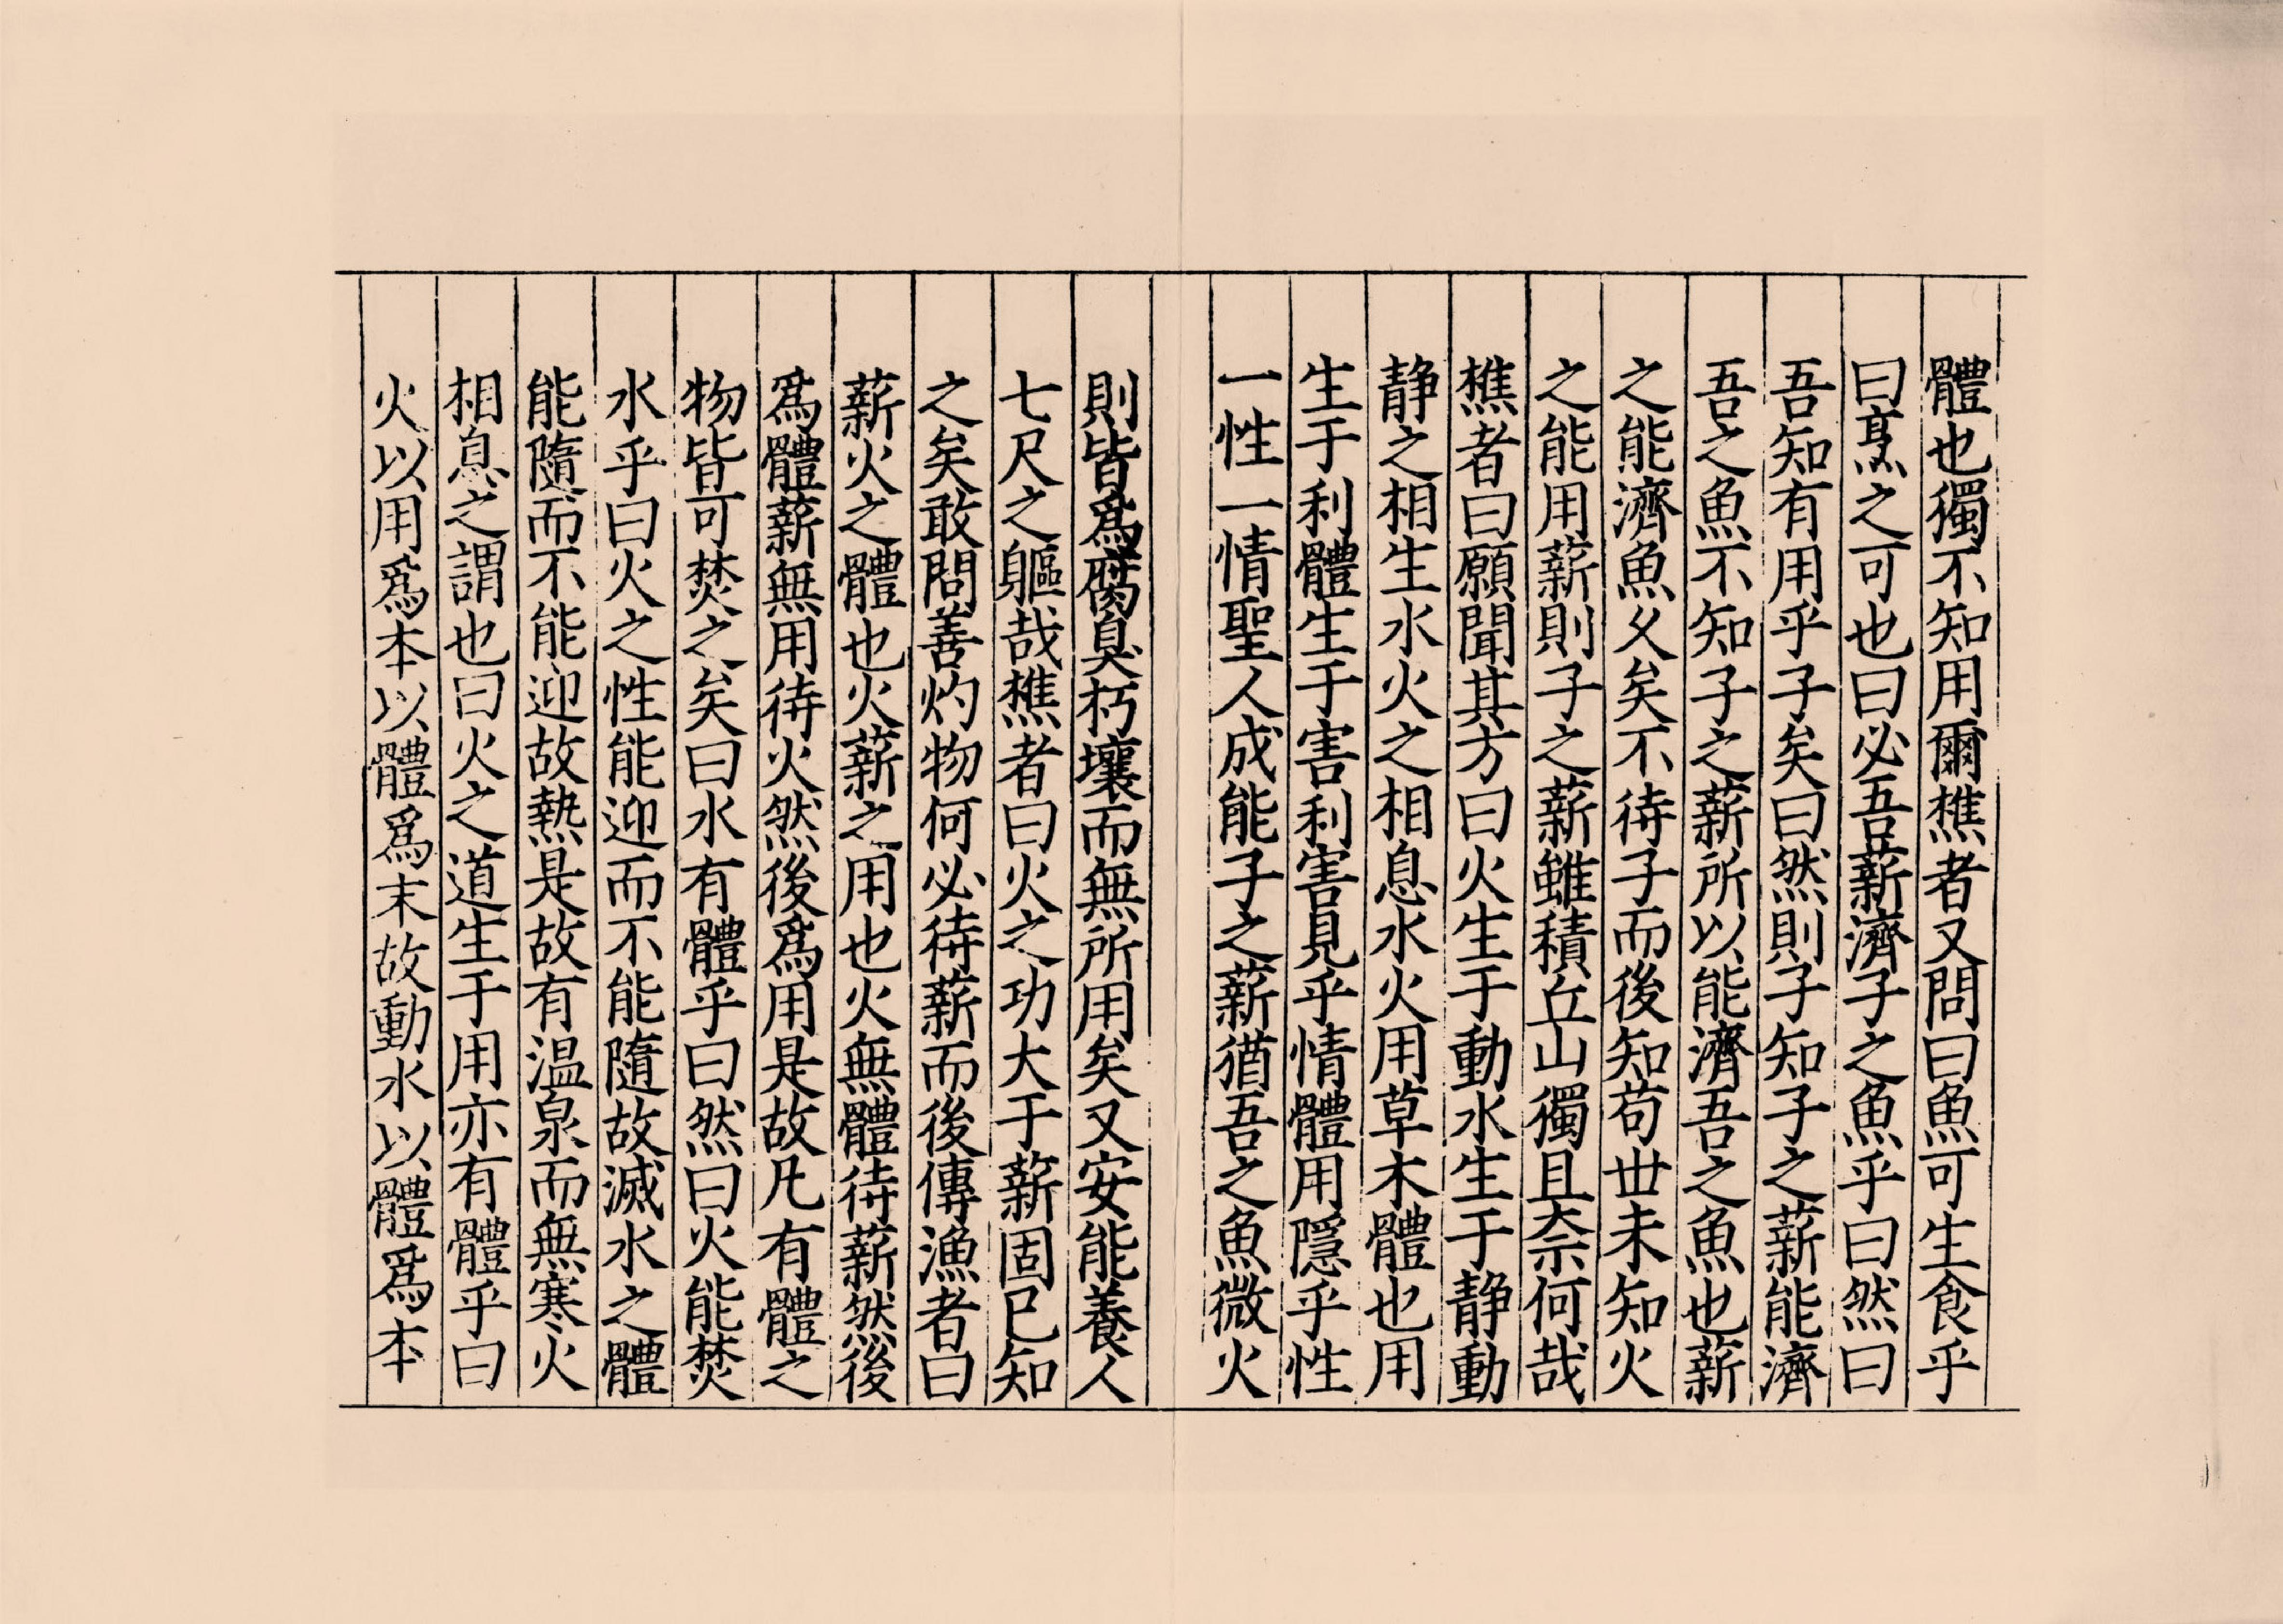 體也獨不知用爾樵者又問曰魚可生食乎
曰烹之可也曰必吾薪濟子之魚乎曰然曰
吾知有用乎子矣曰然則子知子之薪能濟
吾之魚不知子之薪所以能濟吾之魚也薪
之能濟魚乆矣不待子而後知苟世未知火
之能用薪則子之薪雖積丘山獨且奈何哉
樵者曰願聞其方曰火生于動水生于静動
静之相生水火之相息水火用草木體也用
生于利體生于害利害見乎情體用隱乎性
一性一情聖人成能子之薪猶吾之魚微火
則皆爲腐臭朽壞而無所用矣又安能養人
七尺之軀哉樵者曰火之功大于薪固已知
之矣敢問善灼物何必待薪而後傳漁者曰
薪火之體也火薪之用也火無體待薪然後
爲體薪無用待火然後爲用是故凡有體之
物皆可焚之矣曰水有體乎曰然曰火能焚
水乎曰火之性能迎而不能隨故滅水之體
能隨而不能迎故熱是故有温泉而無寒火
相息之謂也曰火之道生于用亦有體乎曰
火以用爲本以體爲末故動水以體爲本